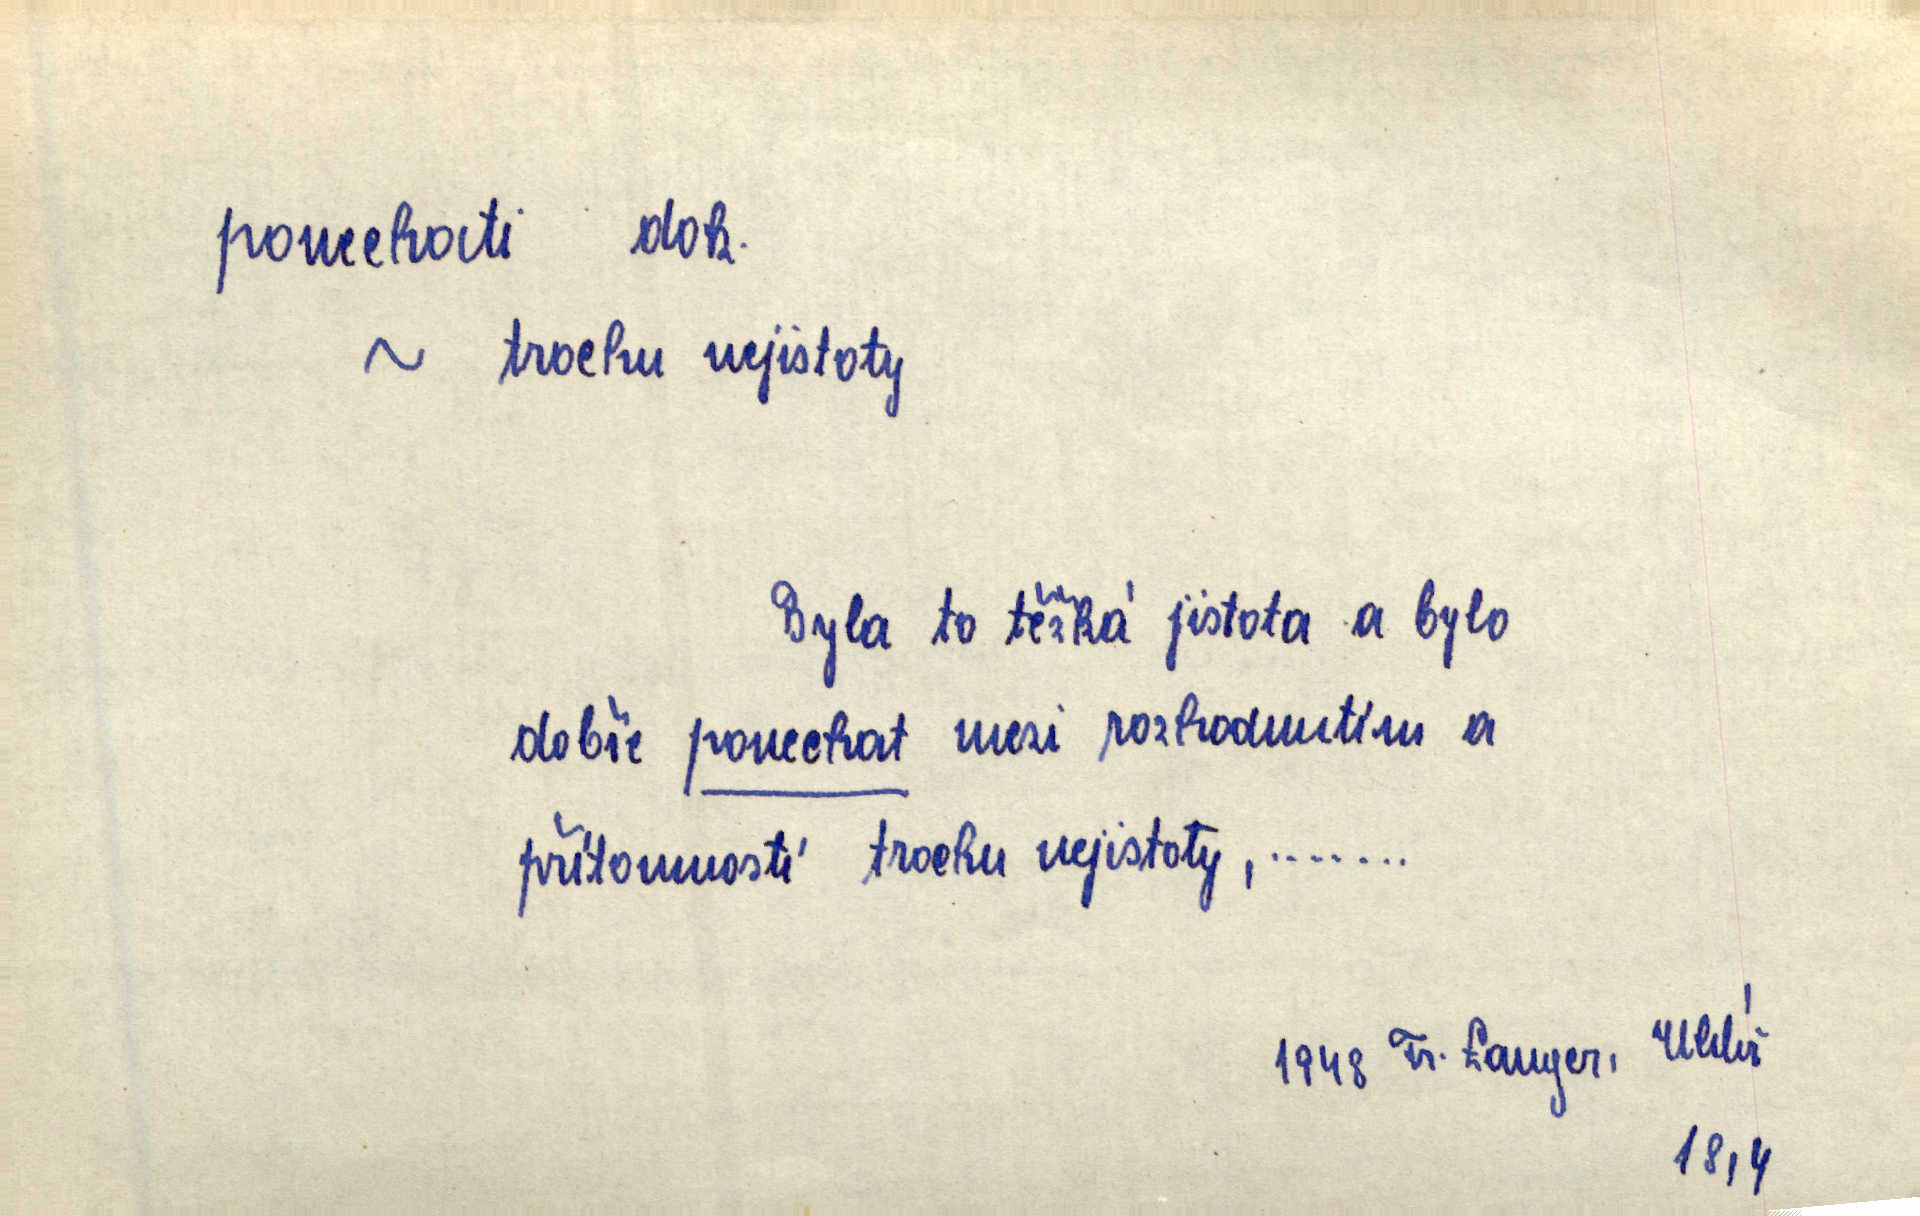 ponechati dok.
~ trochu nejistoty
Byla to těžká jistota a bylo
dobře ponechat mezi rozhodnutím a
přítomností trochu nejistoty, .......
1948 Fr. Langer,
18,4